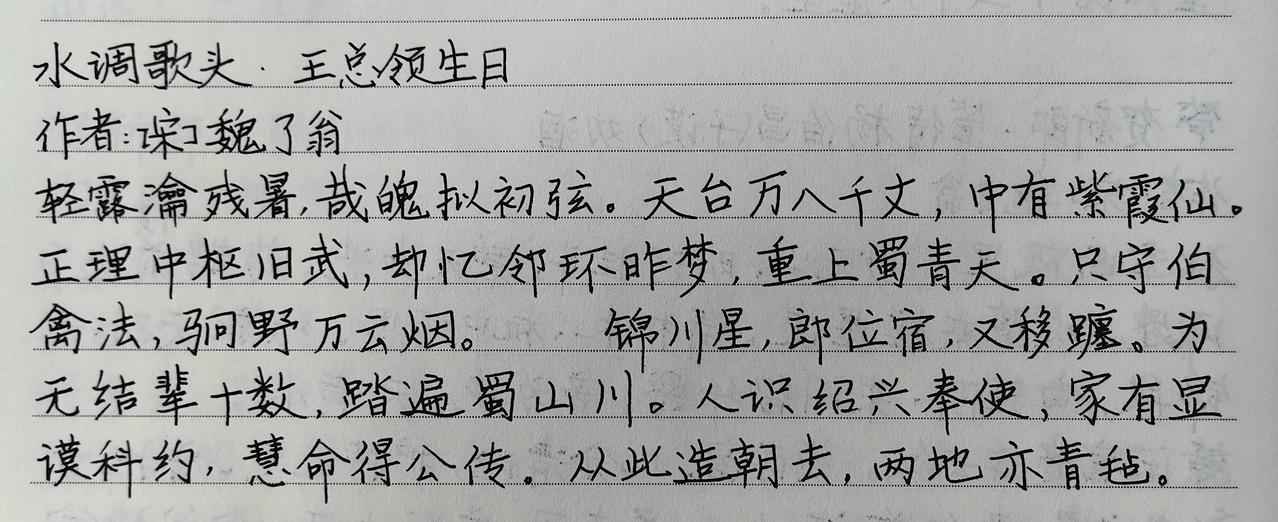 水调歌头·王总领生日
作者:[宋]魏了翁
轻露瀹残暑,哉魄拟初弦。天台万八千丈,中有紫霞仙。
正理中枢旧武,却忆邻环昨梦,重上蜀青天。只守伯
禽法,驷野万云烟。 锦川星,郎位宿,又移躔。为
无结辈十数,踏遍蜀山川。人识绍兴奉使,家有显
谟科约,慧命得公传。从此造朝去,两地亦青毡。